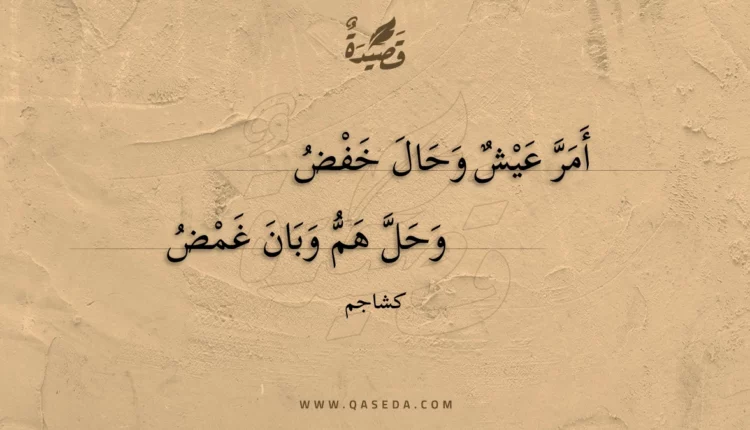 قَصِيْدَةٌ
أَمَرَّ عَيْشٌ وَحَالَ خَفْضُ
وَحَلَّ هَمٌّ وَبَانَ غَمْضُ
كشاجم
WWW.QASEDA.COM